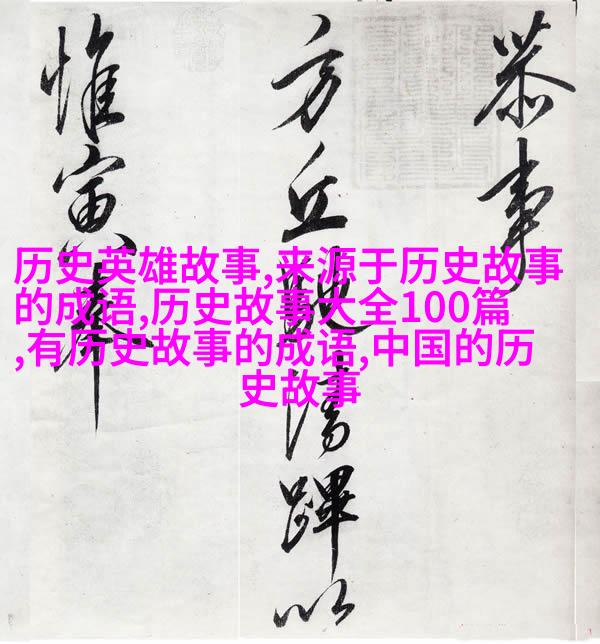 恭事
方丘蹕以
惟寅奉
历史英雄故事,来源于历史故事
的成语,历史故事大全100篇
,有历史故事的成语,中国的历
史故事